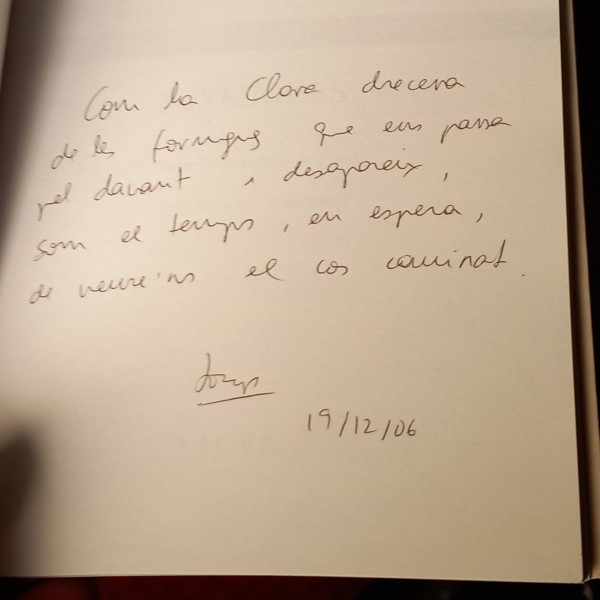 Com la Clara drecera
de les formigues que ens passa
pel davant i desapareix,
som el temps, en espera,
de veure'ns el cos caminat.
Josep
19/12/06